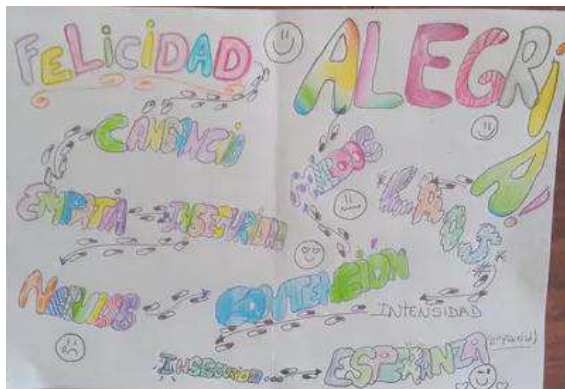 FELICIDAD
ALEGRÍA!
CANSANCIO
EMPATÍA
INSEGURIDAD
CONTENCIÓN
INTENSIDAD
INSEGURIDAD
ESPERANZA